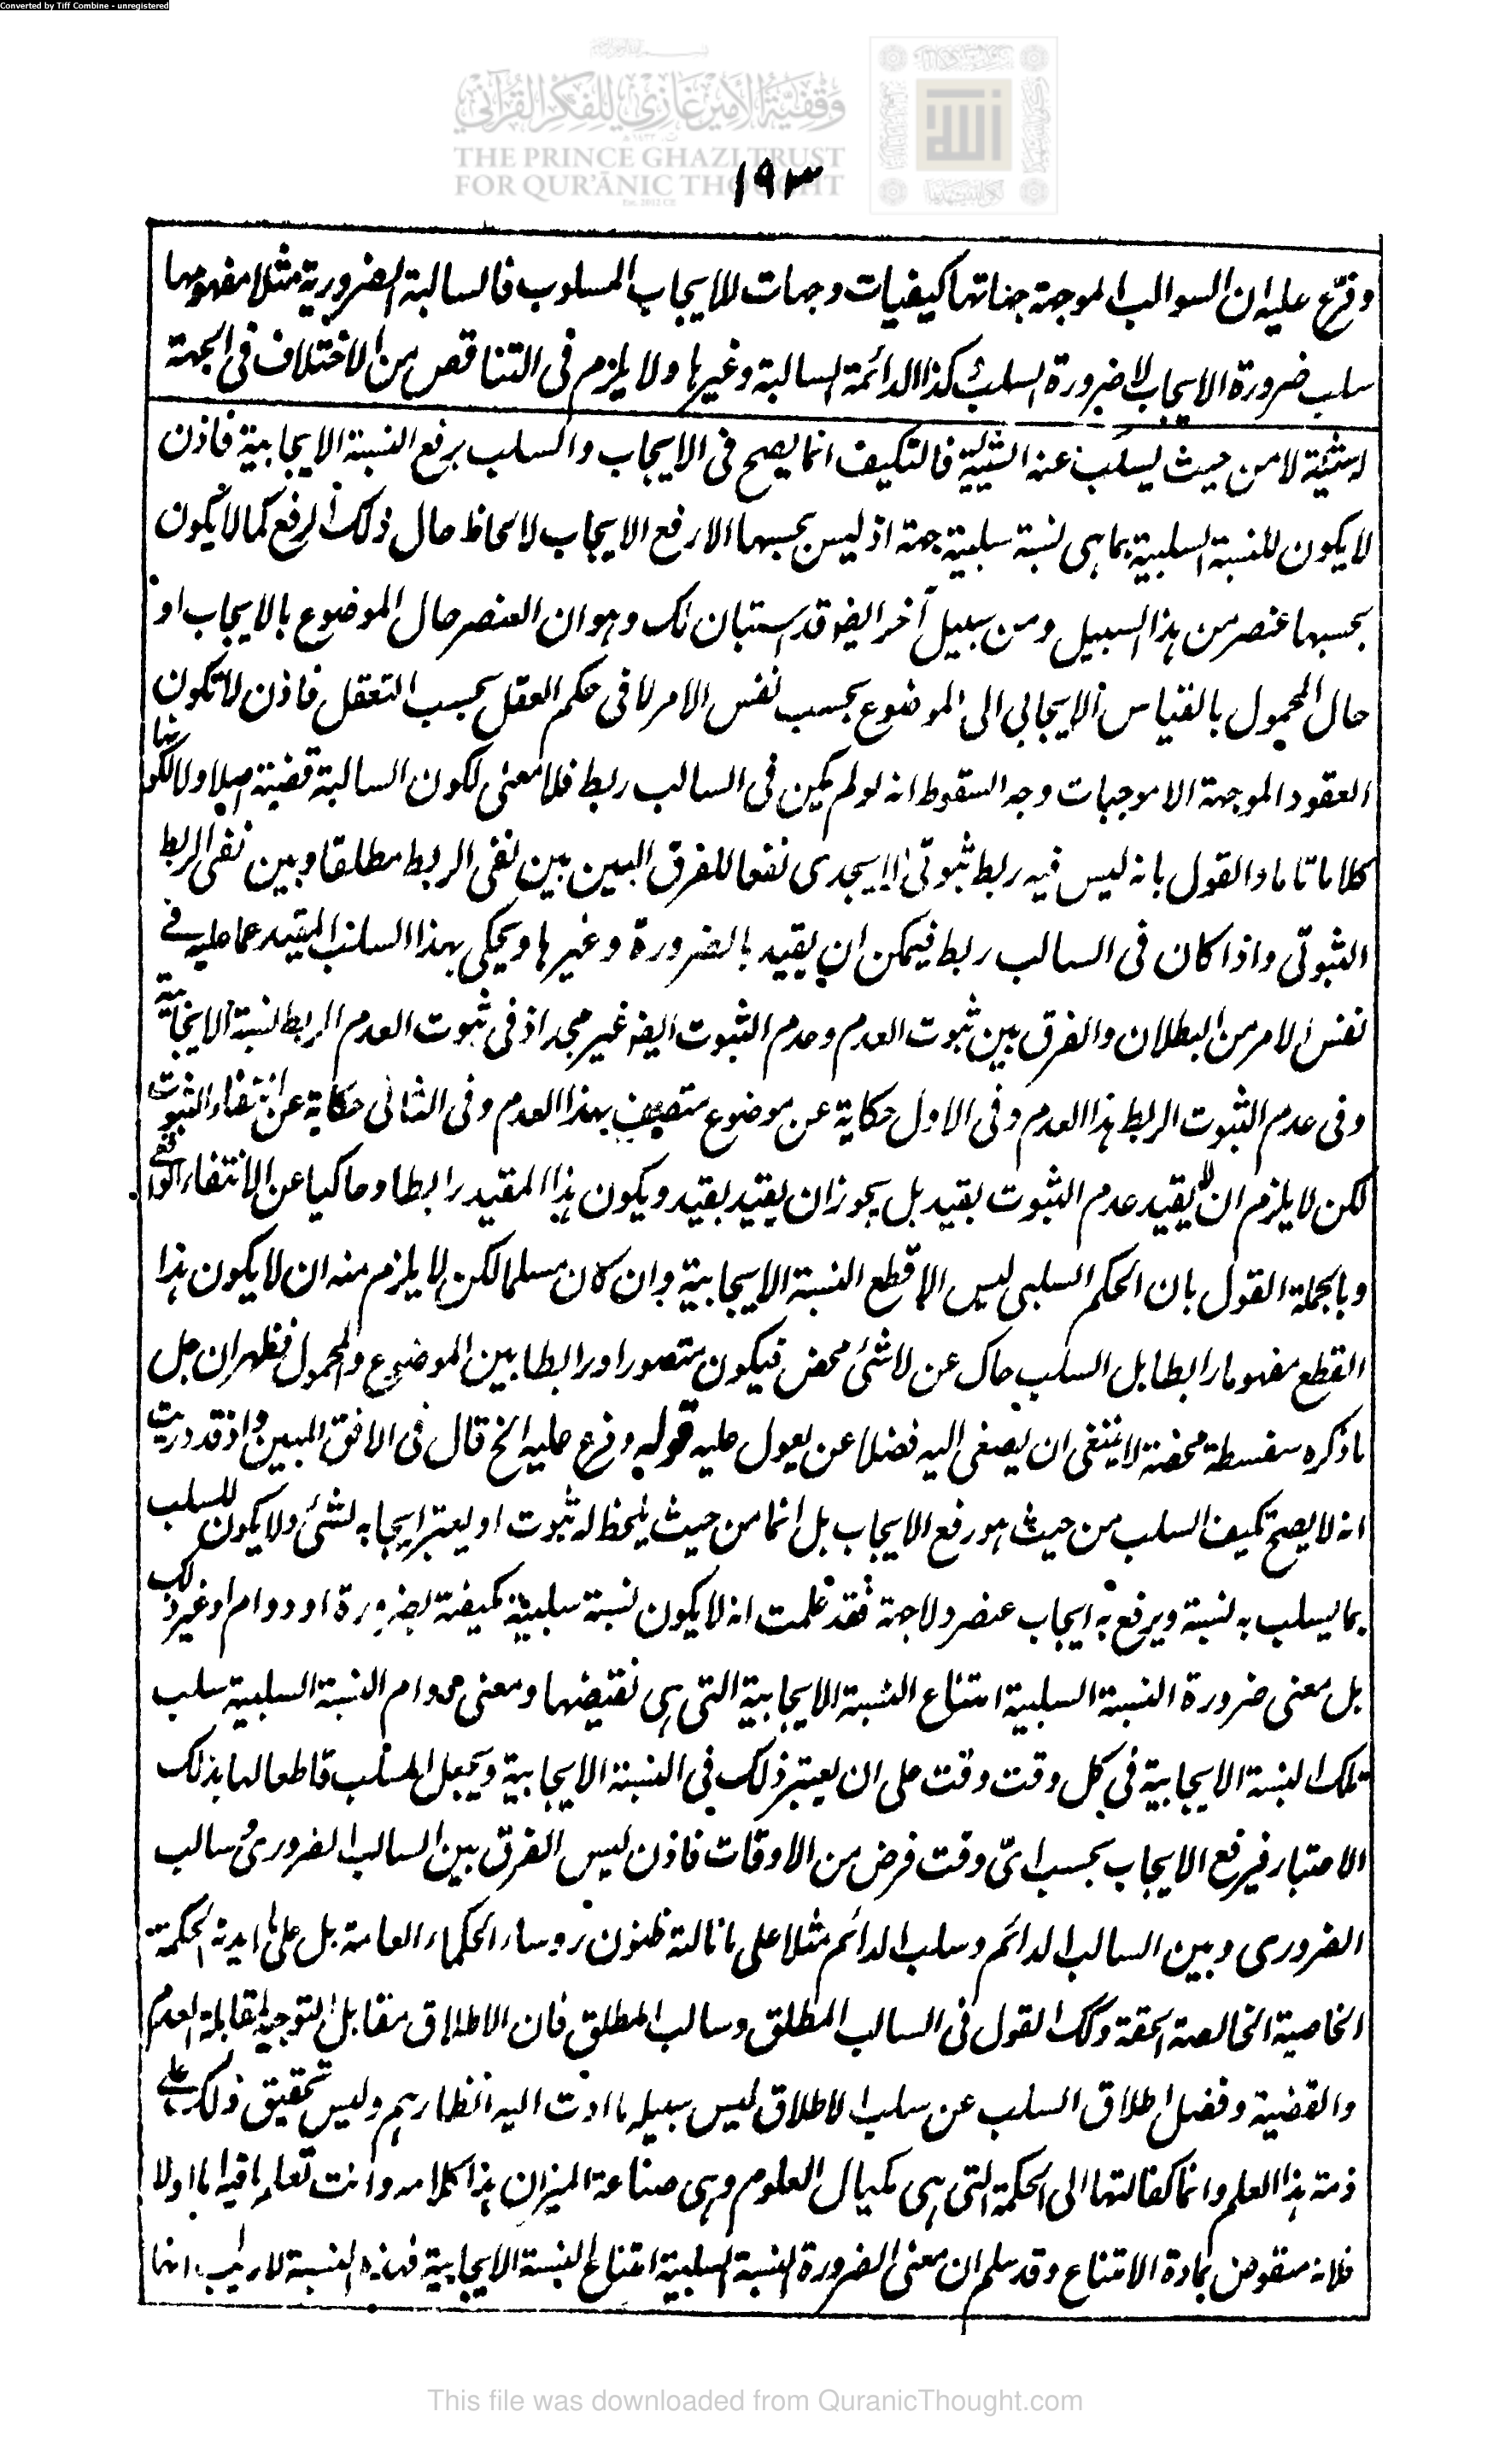 Converted by Tiff Combine - unregistered
وقفية الأمير غازي للفكر القرآني
THE PRINCE GHAZI TRUST
FOR QUR'ĀNIC THOUGHT
١٩٣
وفرع عليه ان السوالب الموجهة جهاتها كيفيات وجهات للايجاب المسلوب فالسالبة الضرورية مثلا مفهومها
سلب ضرورة الايجاب لا ضرورة السلب وكذا الدائمة السالبة وغيرها ولا يلزم فى التناقض من الاختلاف فى الجهة
له شيئية لا من حيث يسلب عنه الشيئية فالتكيف انما يصح فى الايجاب والسلب برفع النسبة الايجابية فاذن
لا يكون للنسبة السلبية بما هى نسبة سلبية جهة اذ ليس بحسبها الا رفع الايجاب لا لحاظ حال ذلك الرفع كما لا يكون
بحسبها عنصر من هذا السبيل ومن سبيل آخر ايضا قد استبان لك وهو ان العنصر حال الموضوع بالايجاب او
حال المحمول بالقياس الايجابى الى الموضوع بحسب نفس الامر لا فى حكم العقل بحسب التعقل فاذن لا تكون
العقود الموجهة الا موجبات وجه السقوط انه لو لم يكن فى السالب ربط فلا معنى لكون السالبة قضية اصلا ولا لكونها
كلاما تاما والقول بانه ليس فيه ربط ثبوتى لا يجدى نفعا للفرق البين بين نفى الربط مطلقا وبين نفى الربط
الثبوتى واذا كان فى السالب ربط فيمكن ان يقيد بالضرورة وغيرها ويحكى بهذا السلب المقيد عما عليه فى
نفس الامر من البطلان والفرق بين ثبوت العدم وعدم الثبوت ايضا غير مجد اذ فى ثبوت العدم الربط نسبة الايجابية
وفى عدم الثبوت الربط هذا العدم وفى الاول حكاية عن موضوع متصف بهذا العدم وفى الثانى حكاية عن انتفاء الثبوت
لكن لا يلزم ان لا يقيد عدم الثبوت بقيد بل يجوز ان يقيد بقيد ويكون هذا المقيد رابطا وحاكيا عن الانتفاء الواقعى
وبالجملة القول بان الحكم السلبى ليس الا قطع النسبة الايجابية وان كان مسلما لكن لا يلزم منه ان لا يكون هذا
القطع مفهوما رابطا بل السلب حاك عن لا شئ محض فيكون متصورا ورابطا بين الموضوع والمحمول فظهر ان جل
ما ذكره سفسطة محضة لا ينبغى ان يصغى اليه فضلا عن يعول عليه قوله وفرع عليه الخ قال فى الافق المبين واذ قد دريت
انه لا يصح تكيف السلب من حيث هو رفع الايجاب بل انما من حيث يلحظ له ثبوت او يعتبر ايجابه لشئ ولا يكون للسلب
بما يسلب به نسبة ويرفع به ايجاب عنصر ولا جهة فقد علمت انه لا يكون نسبة سلبية مكيفة بضرورة او دوام او غير ذلك
بل معنى ضرورة النسبة السلبية امتناع النسبة الايجابية التى هى نقيضها ومعنى دوام النسبة السلبية سلب
تلك النسبة الايجابية فى كل وقت وقت على ان يعتبر ذلك فى النسبة الايجابية ويجعل السلب قاطعا لها بذلك
الاعتبار فيرفع الايجاب بحسب اىّ وقت فرض من الاوقات فاذن ليس الفرق بين السالب الضرورى وسالب
الضرورى وبين السالب الدائم وسلب الدائم مثلا على ما نالته ظنون روساء الحكماء العامة بل على ما يدية الحكمة
الخاصية الخالصة الحقة وكك القول فى السالب المطلق وسالب المطلق فان الاطلاق مقابل التوجيه تقابل العدم
والقضية وفضل اطلاق السلب عن سلب الاطلاق ليس سبيله ما ادت اليه انظارهم وليس تحقيق ذلك على
ذمة هذا العلم وانما كفالتها الى الحكمة التى هى مكيال العلوم وهى صناعة الميزان هذا كلامه وانت تعلم ما فيه اما اولا
فلانه منقوض بمادة الامتناع وقد سلم ان معنى الضرورة النسبة السلبية امتناع النسبة الايجابية فهذه النسبة لا ريب انها
This file was downloaded from QuranicThought.com